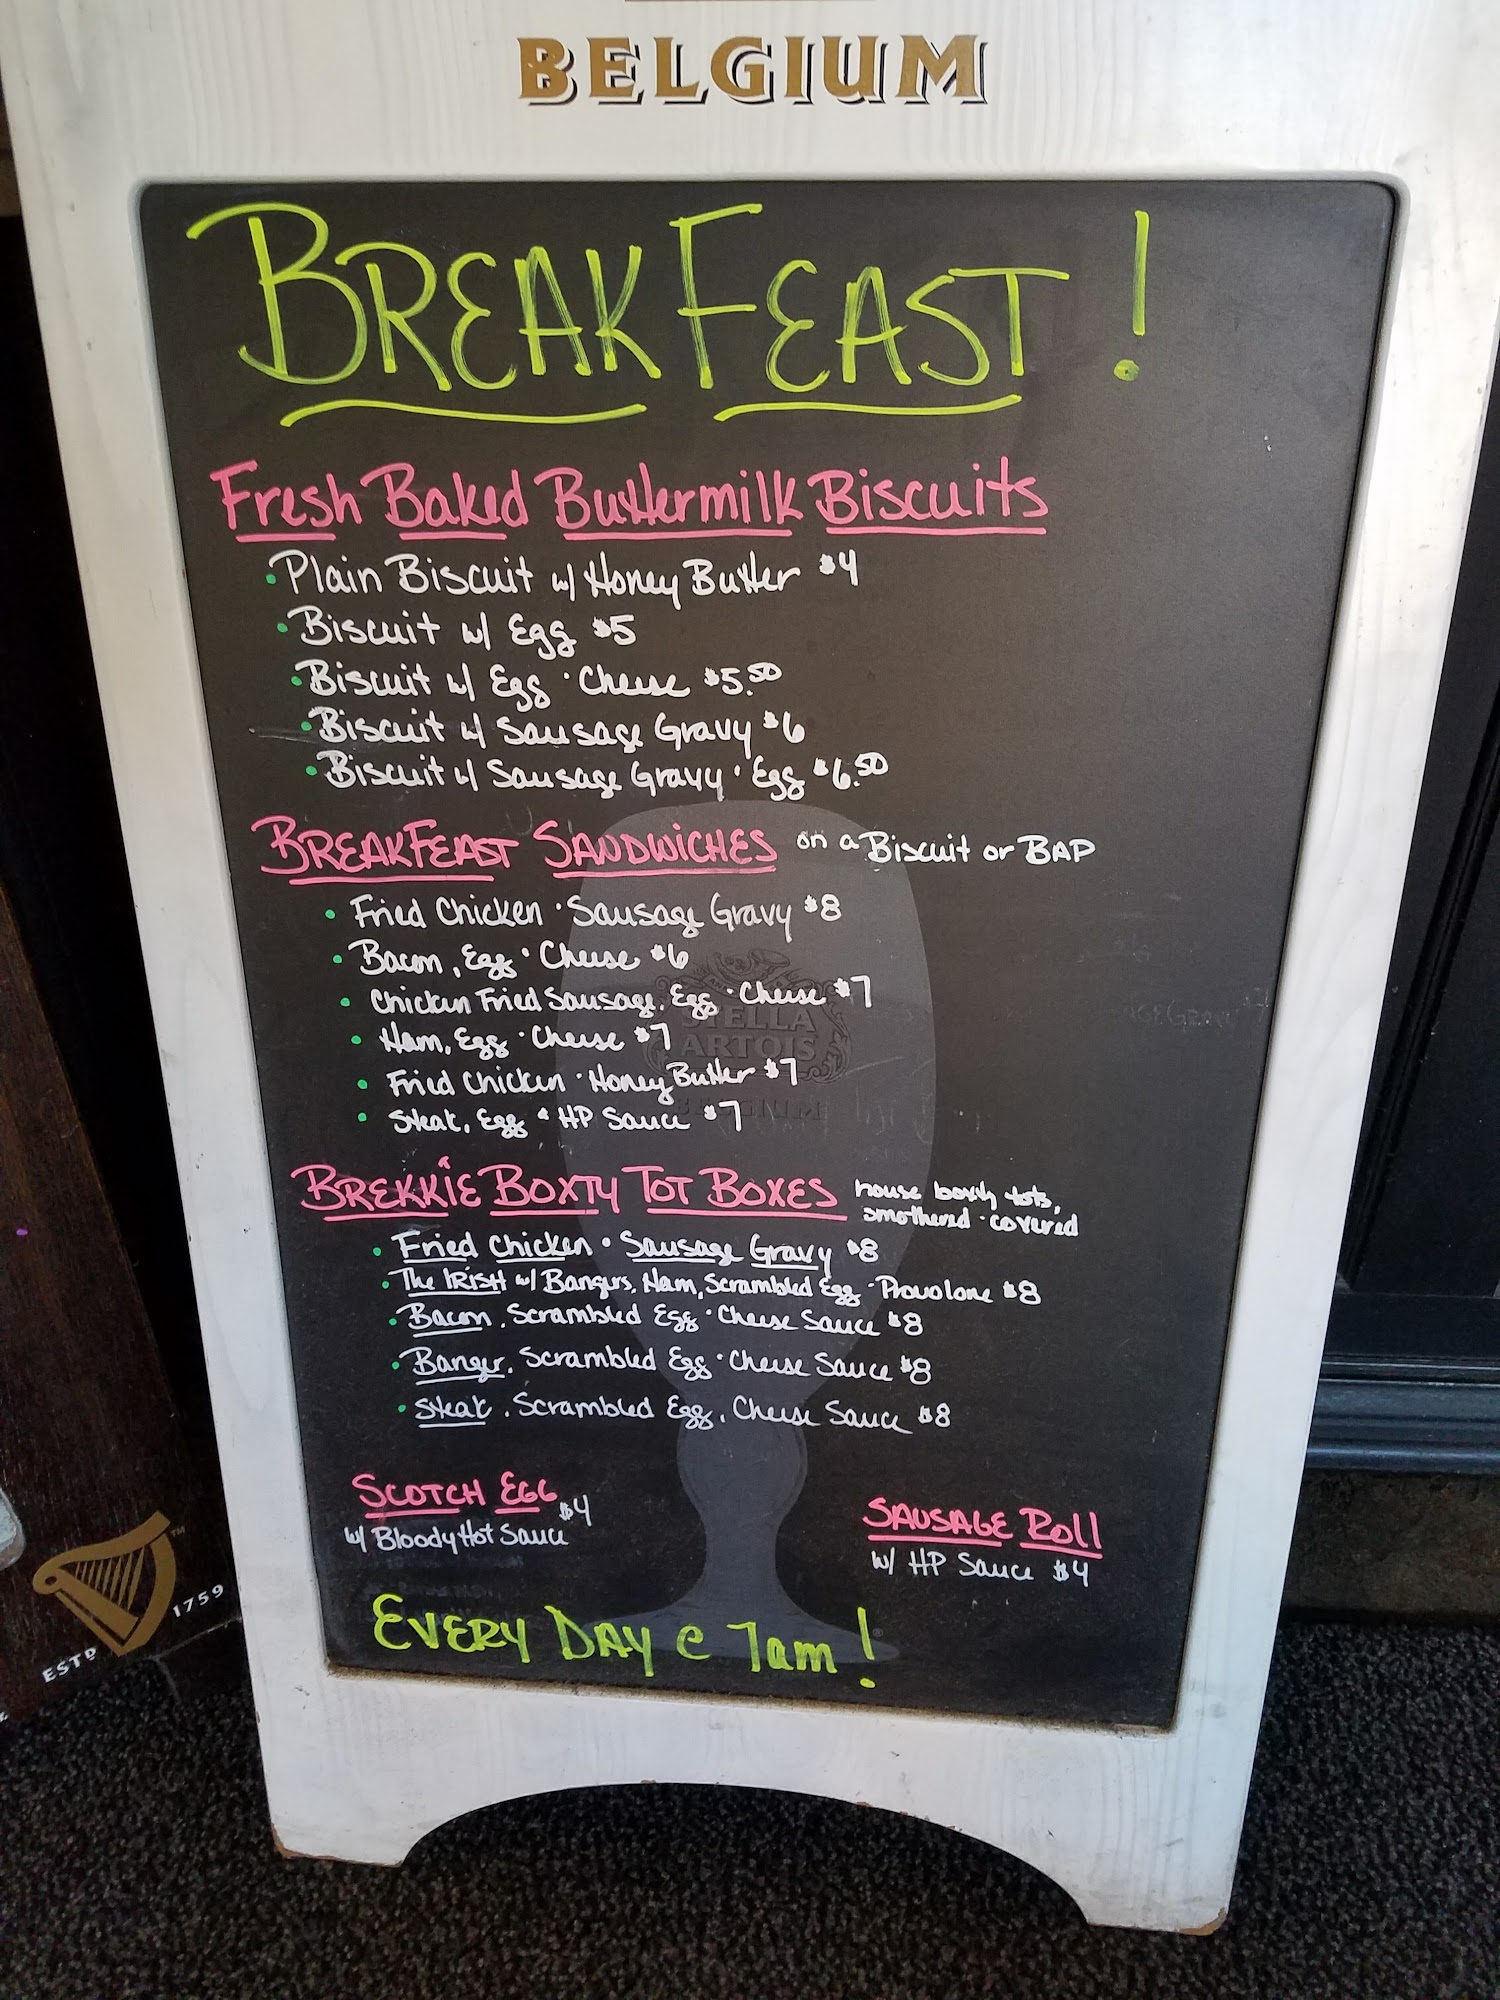 BELGIUM
BREAKFEAST!
Fresh Baked Buttermilk Biscuits
• Plain Biscuit w/ Honey Butter $4
• Biscuit w/ Egg $5
• Biscuit w/ Egg · Cheese $5.50
• Biscuit w/ Sausage Gravy $6
• Biscuit w/ Sausage Gravy · Egg $6.50
BREAKFEAST SANDWICHES on a Biscuit or BAP
• Fried Chicken · Sausage Gravy $8
• Bacon, Egg · Cheese $6
• Chicken Fried Sausage, Egg · Cheese $7
• Ham, Egg · Cheese $7
• Fried Chicken · Honey Butter $7
• Steak, Egg & HP Sauce $7
STELLA
ARTOIS
BELGIUM
BREKKIE BOXTY TOT BOXES house boxty tots,
smothered · covered
• Fried Chicken · Sausage Gravy $8
• The IRISH w/ Bangers, Ham, Scrambled Egg · Provolone $8
• Bacon, Scrambled Egg · Cheese Sauce $8
• Banger, Scrambled Egg · Cheese Sauce $8
• Steak, Scrambled Egg, Cheese Sauce $8
SCOTCH EGG $4
w/ Bloody Hot Sauce
SAUSAGE Roll
w/ HP Sauce $4
EVERY DAY @ 7am!
ESTD 1759